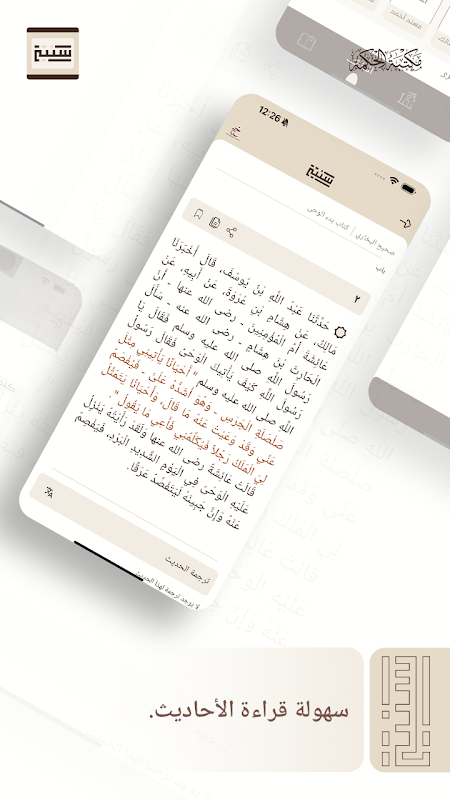 مسند أحمد
مكتبة الحكمة
12:26
صحيح البخاري | كتاب بدء الوحي
باب
٢
حَدَّثَنَا عَبْدُ اللَّهِ بْنُ يُوسُفَ، قَالَ أَخْبَرَنَا
مَالِكٌ، عَنْ هِشَامِ بْنِ عُرْوَةَ، عَنْ أَبِيهِ، عَنْ
عَائِشَةَ أُمِّ الْمُؤْمِنِينَ ـ رضى الله عنها ـ أَنَّ
الْحَارِثَ بْنَ هِشَامٍ ـ رضى الله عنه ـ سَأَلَ
رَسُولَ اللَّهِ صلى الله عليه وسلم فَقَالَ يَا
رَسُولَ اللَّهِ كَيْفَ يَأْتِيكَ الْوَحْىُ فَقَالَ رَسُولُ
اللَّهِ صلى الله عليه وسلم " أَحْيَانًا يَأْتِينِي مِثْلَ
صَلْصَلَةِ الْجَرَسِ ـ وَهُوَ أَشَدُّهُ عَلَىَّ ـ فَيُفْصَمُ
عَنِّي وَقَدْ وَعَيْتُ عَنْهُ مَا قَالَ، وَأَحْيَانًا يَتَمَثَّلُ
لِيَ الْمَلَكُ رَجُلاً فَيُكَلِّمُنِي فَأَعِي مَا يَقُولُ "
قَالَتْ عَائِشَةُ رضى الله عنها وَلَقَدْ رَأَيْتُهُ يَنْزِلُ
عَلَيْهِ الْوَحْىُ فِي الْيَوْمِ الشَّدِيدِ الْبَرْدِ، فَيَفْصِمُ
عَنْهُ وَإِنَّ جَبِينَهُ لَيَتَفَصَّدُ عَرَقًا.
ترجمة الحديث
لا يوجد ترجمة لهذا الحديث
سهولة قراءة الأحاديث.